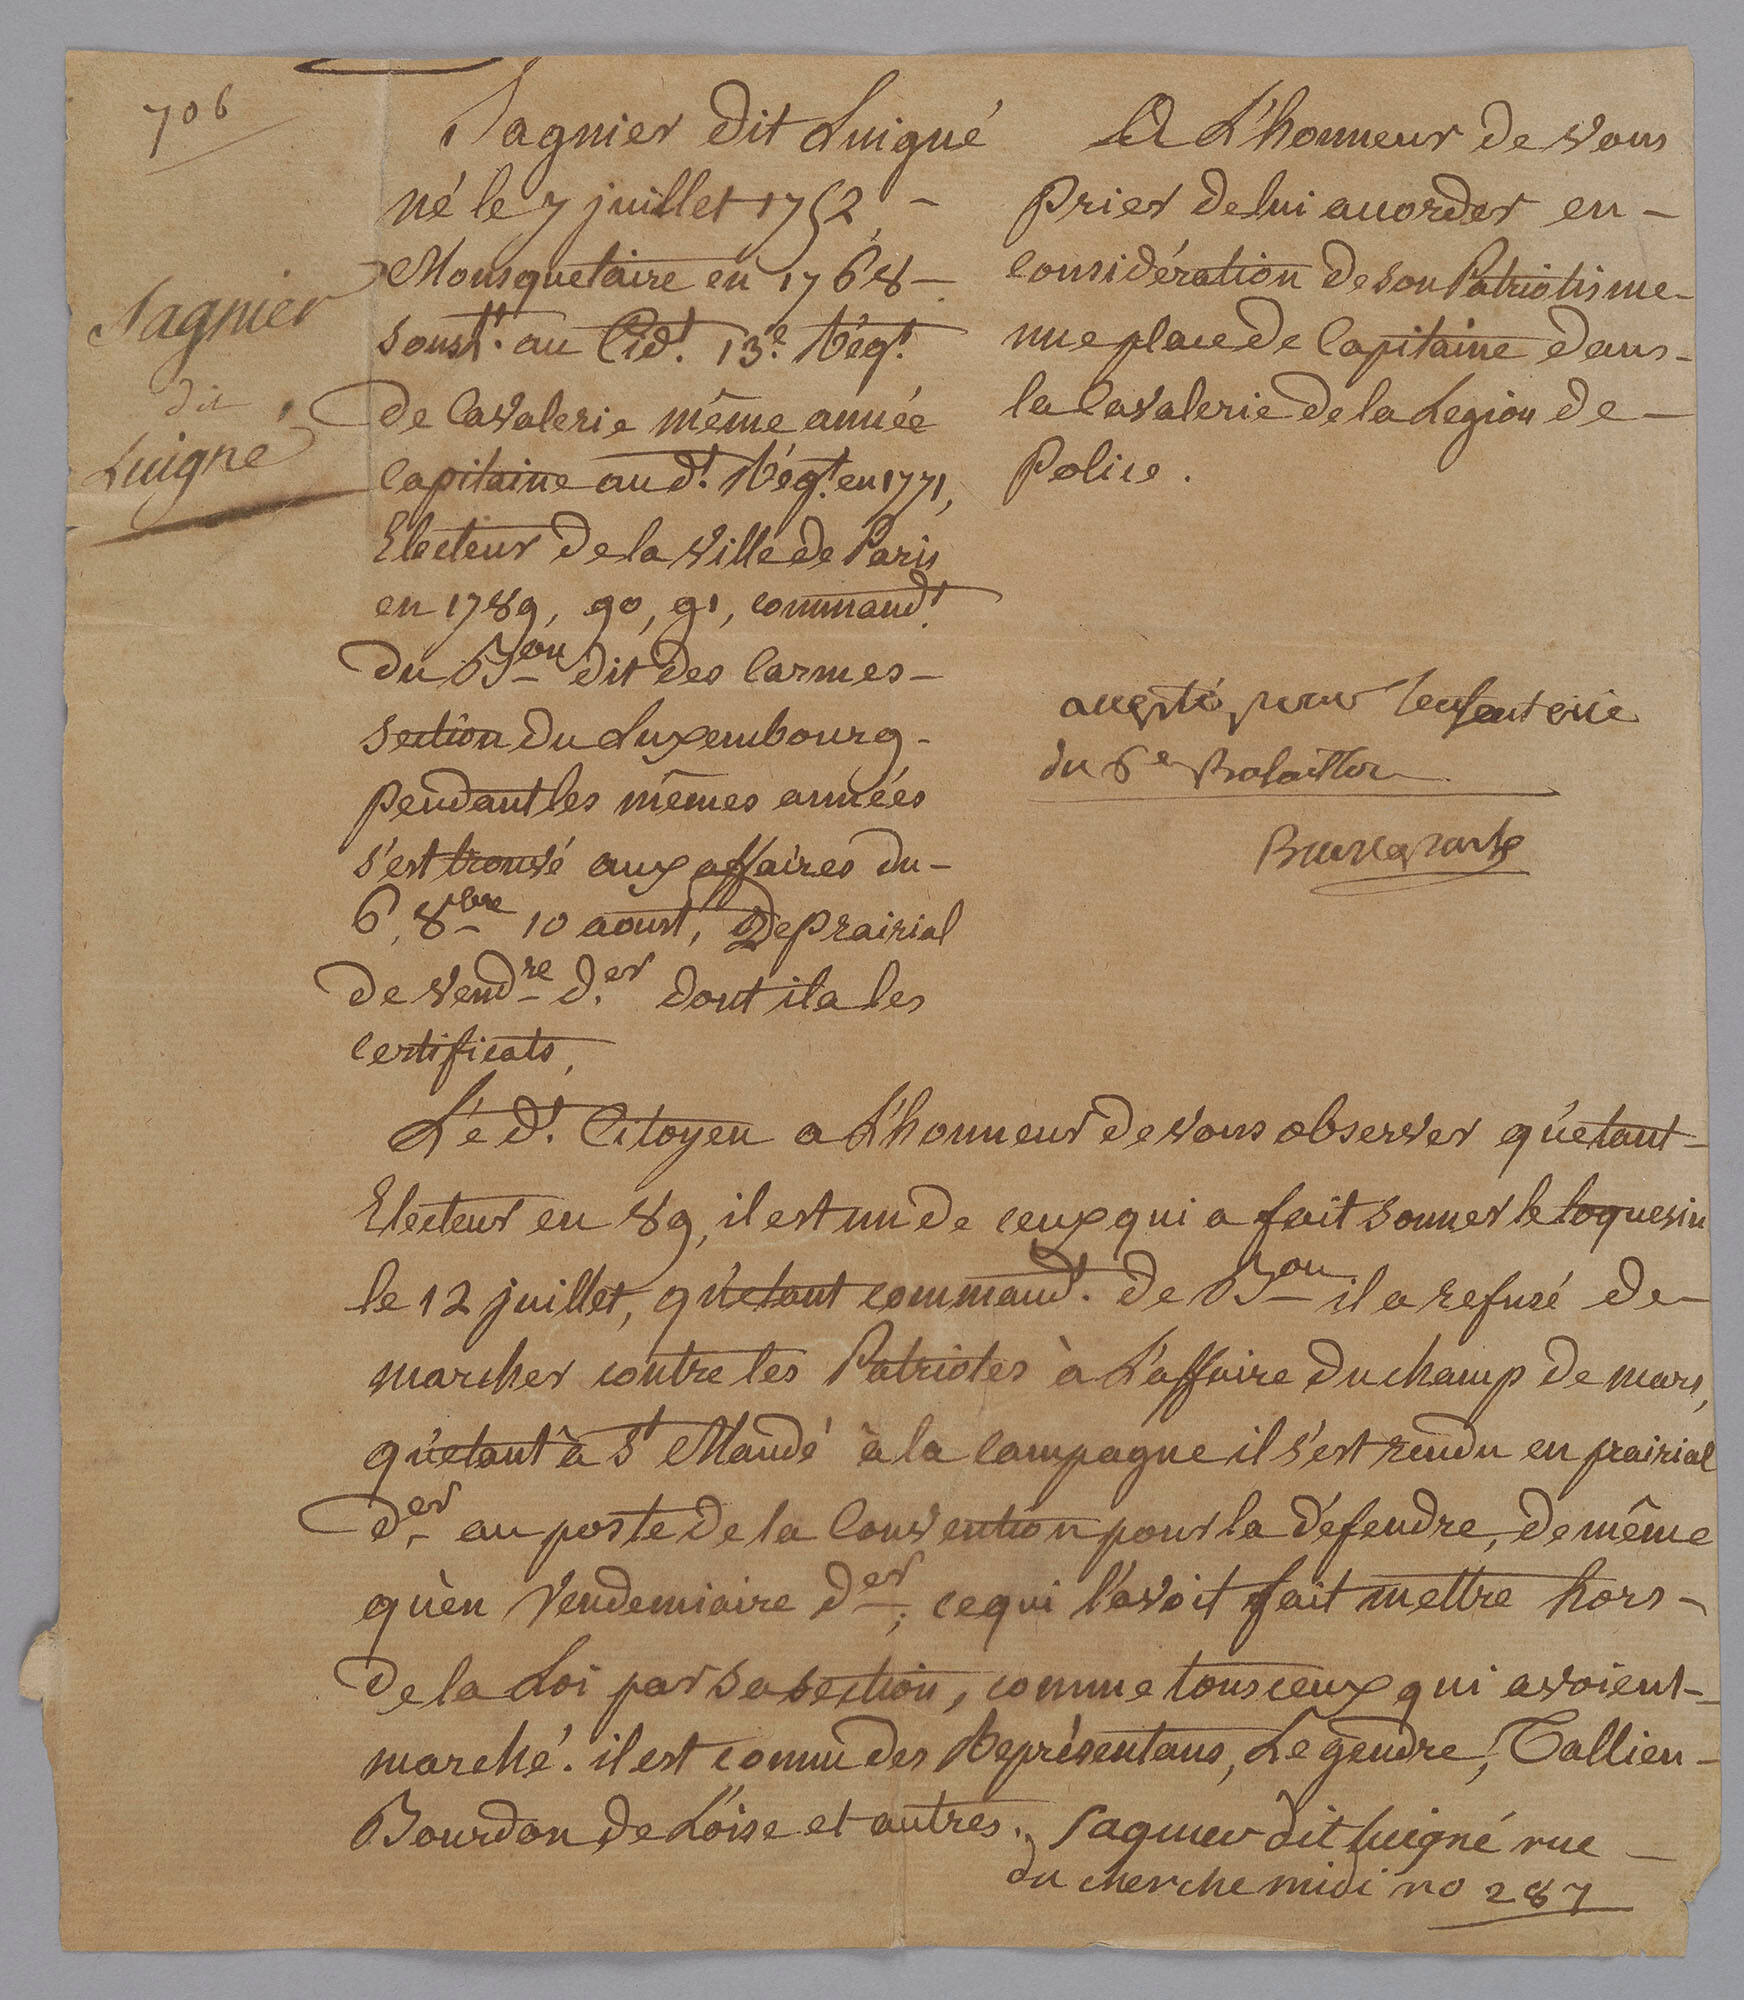 706
Sagnier
dit
Luigné
Sagnier dit Luigné
né le 7 juillet 1752 -
Mousquetaire en 1768 -
sousl.t au Cid.t 13.e Rég.t
de Cavalerie même année
Capitaine aud.t Rég.t en 1771,
Electeur de la Ville de Paris
en 1789, 90, 91, command.t
du B.on dit des Carmes -
section du Luxembourg -
pendant les mêmes années
s'est trouvé aux affaires du -
6, 8.bre 10 aoust, De prairial
de vend.re d.er dont il a les
Certificats,
A L'honneur de vous
prier de lui acorder en -
Considération de son Patriotisme -
une place de Capitaine dans -
la Cavalerie de la Legion de -
Police.
accepté pour l'enfenterie
du 6e Bataillon
Buonaparte
Lé d.t Citoyen a L'honneur de vous observer qu'etant -
Electeur en 89, il est un de ceux qui a fait sonner le toquesin
le 12 juillet, qu'etant command.t de B.on il a refusé de -
marcher contre les Patriotes à L'affaire du champ de mars,
qu'etant à St Mandé à la Campagne il s'est rendu en prairial
d.er au poste de la Convention pour la défendre, de même
qu'en Vendemiaire d.er; ce qui l'avoit fait mettre hors -
de la Loi par sa section, comme tous ceux qui avoient -
marché. il est connu des Représentans, Legendre, Tallien -
Bourdon de L'oise et autres. Sagnier dit Luigné rue -
du cherche midi no 287